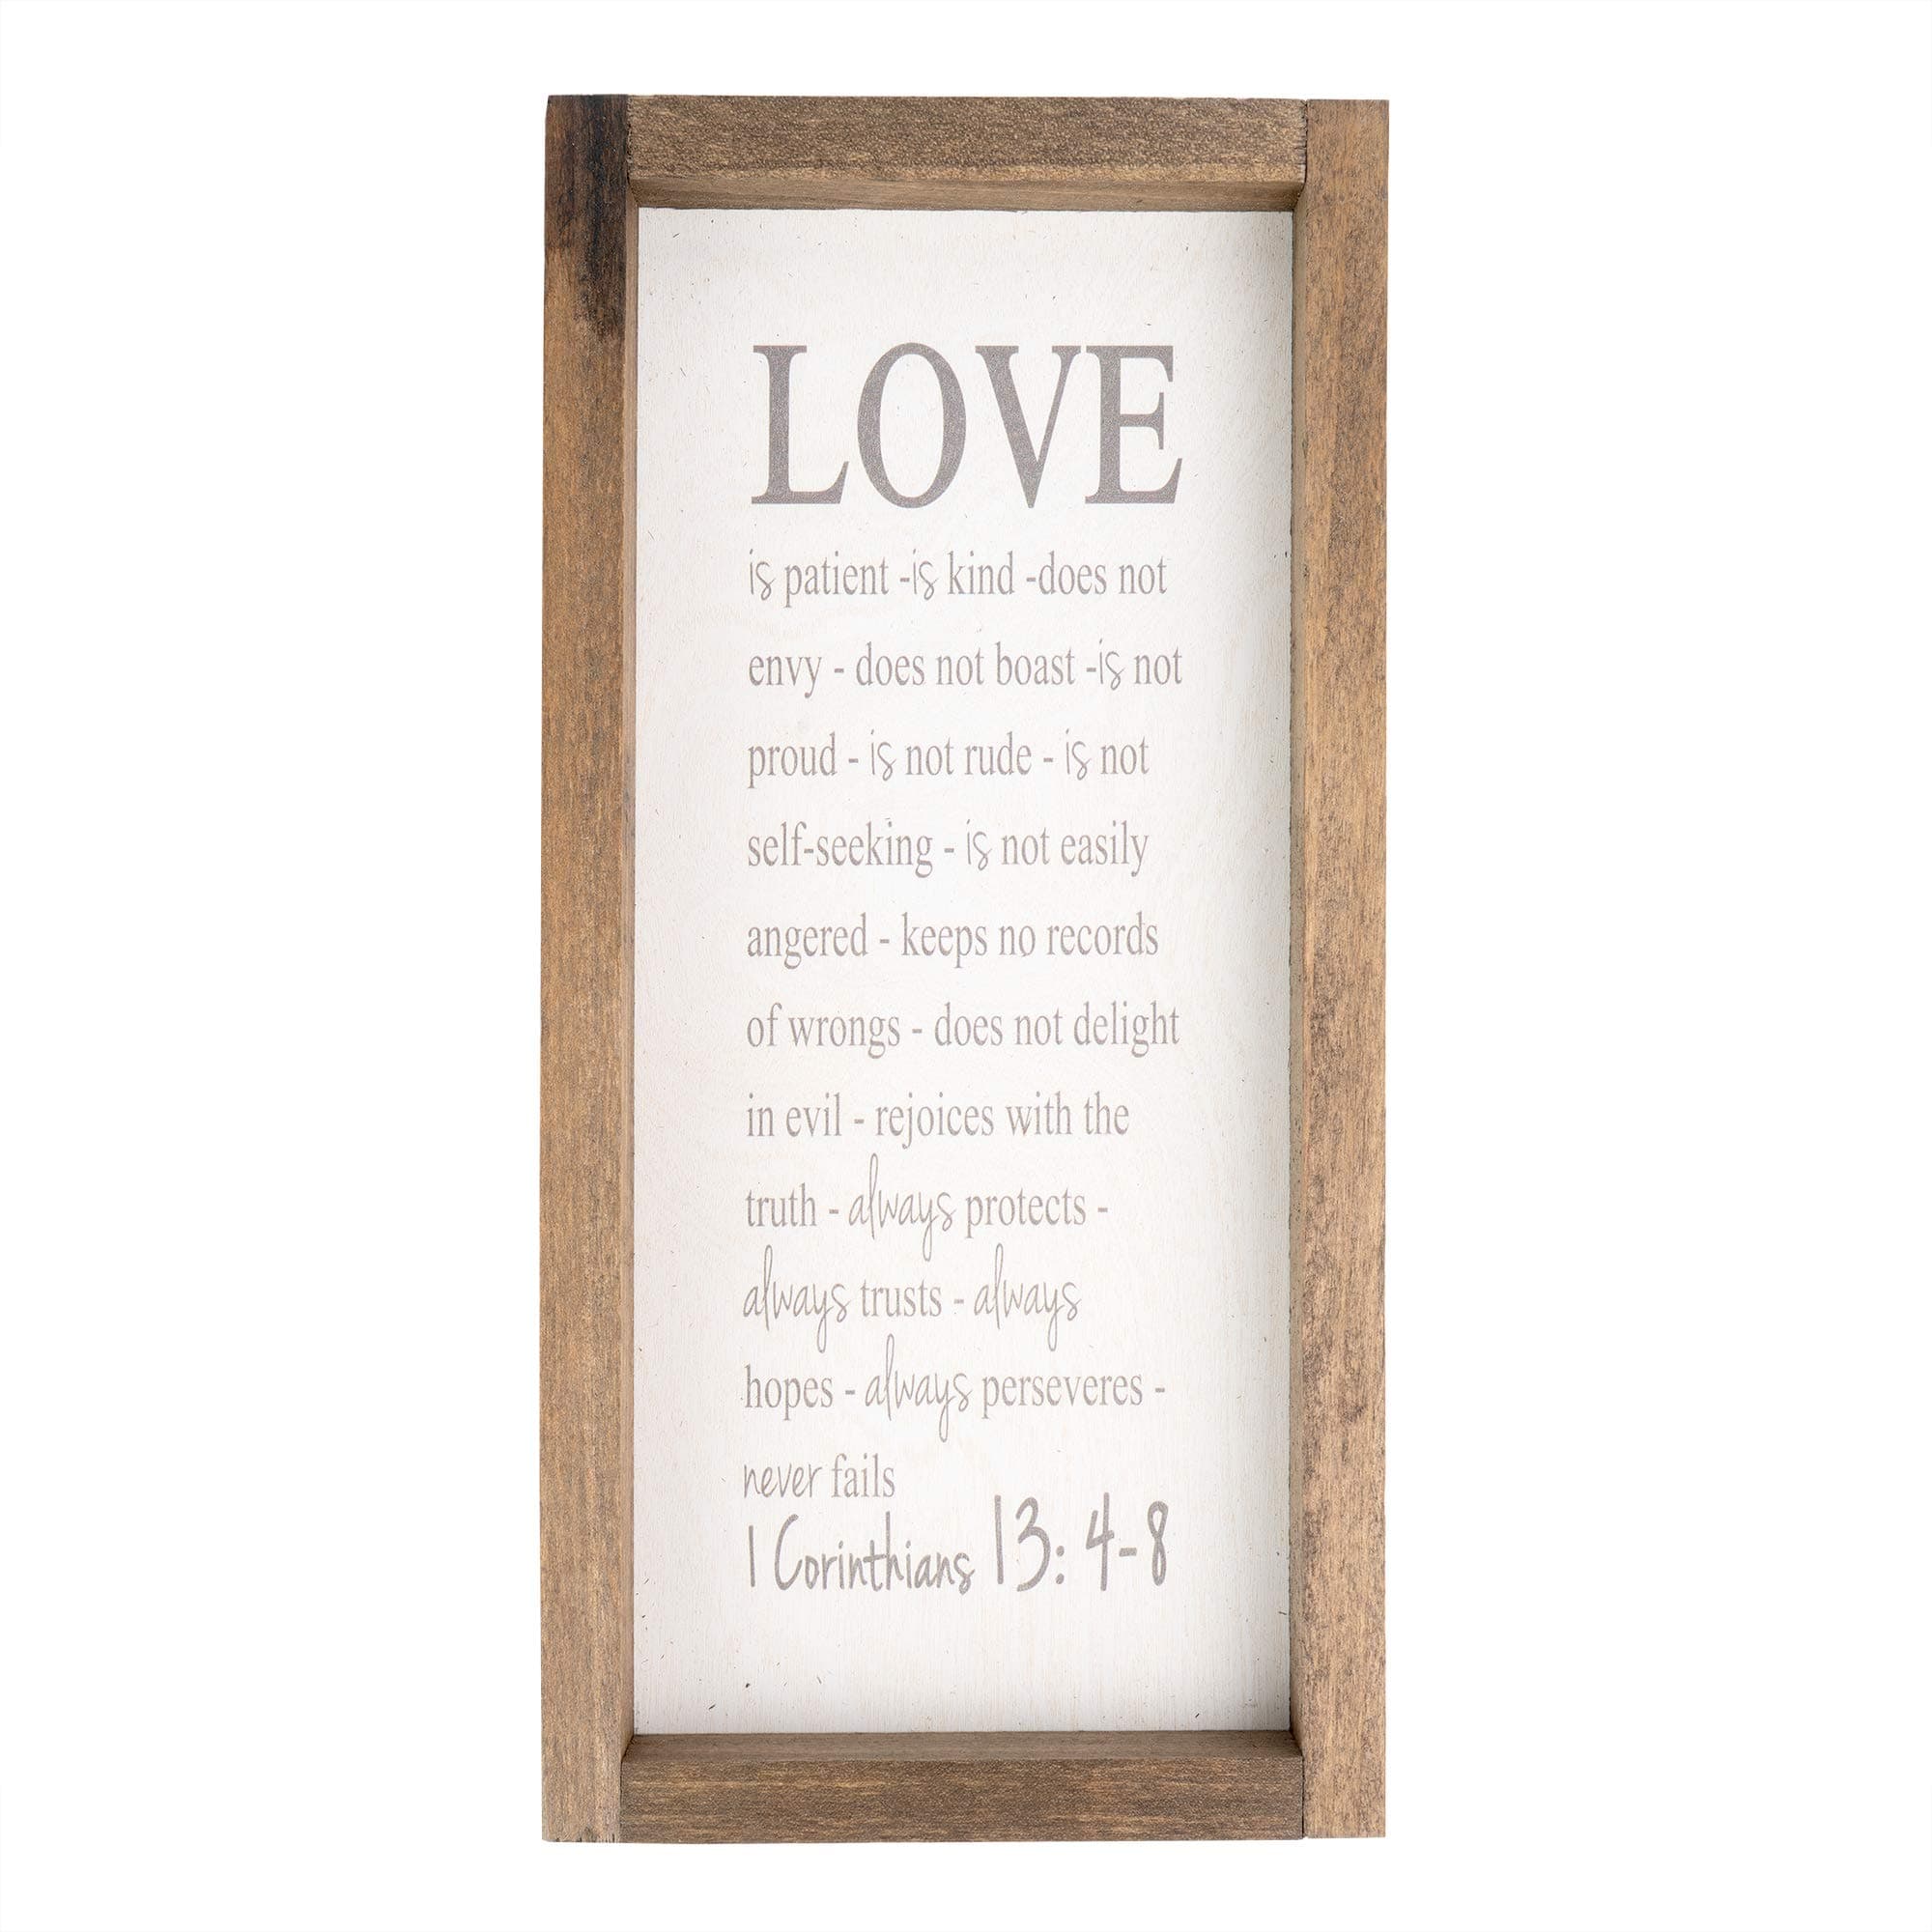 LOVE
is patient -is kind -does not
envy - does not boast -is not
proud - is not rude - is not
self-seeking - is not easily
angered - keeps no records
of wrongs - does not delight
in evil - rejoices with the
truth - always protects -
always trusts - always
hopes - always perseveres -
never fails
1 Corinthians 13: 4-8